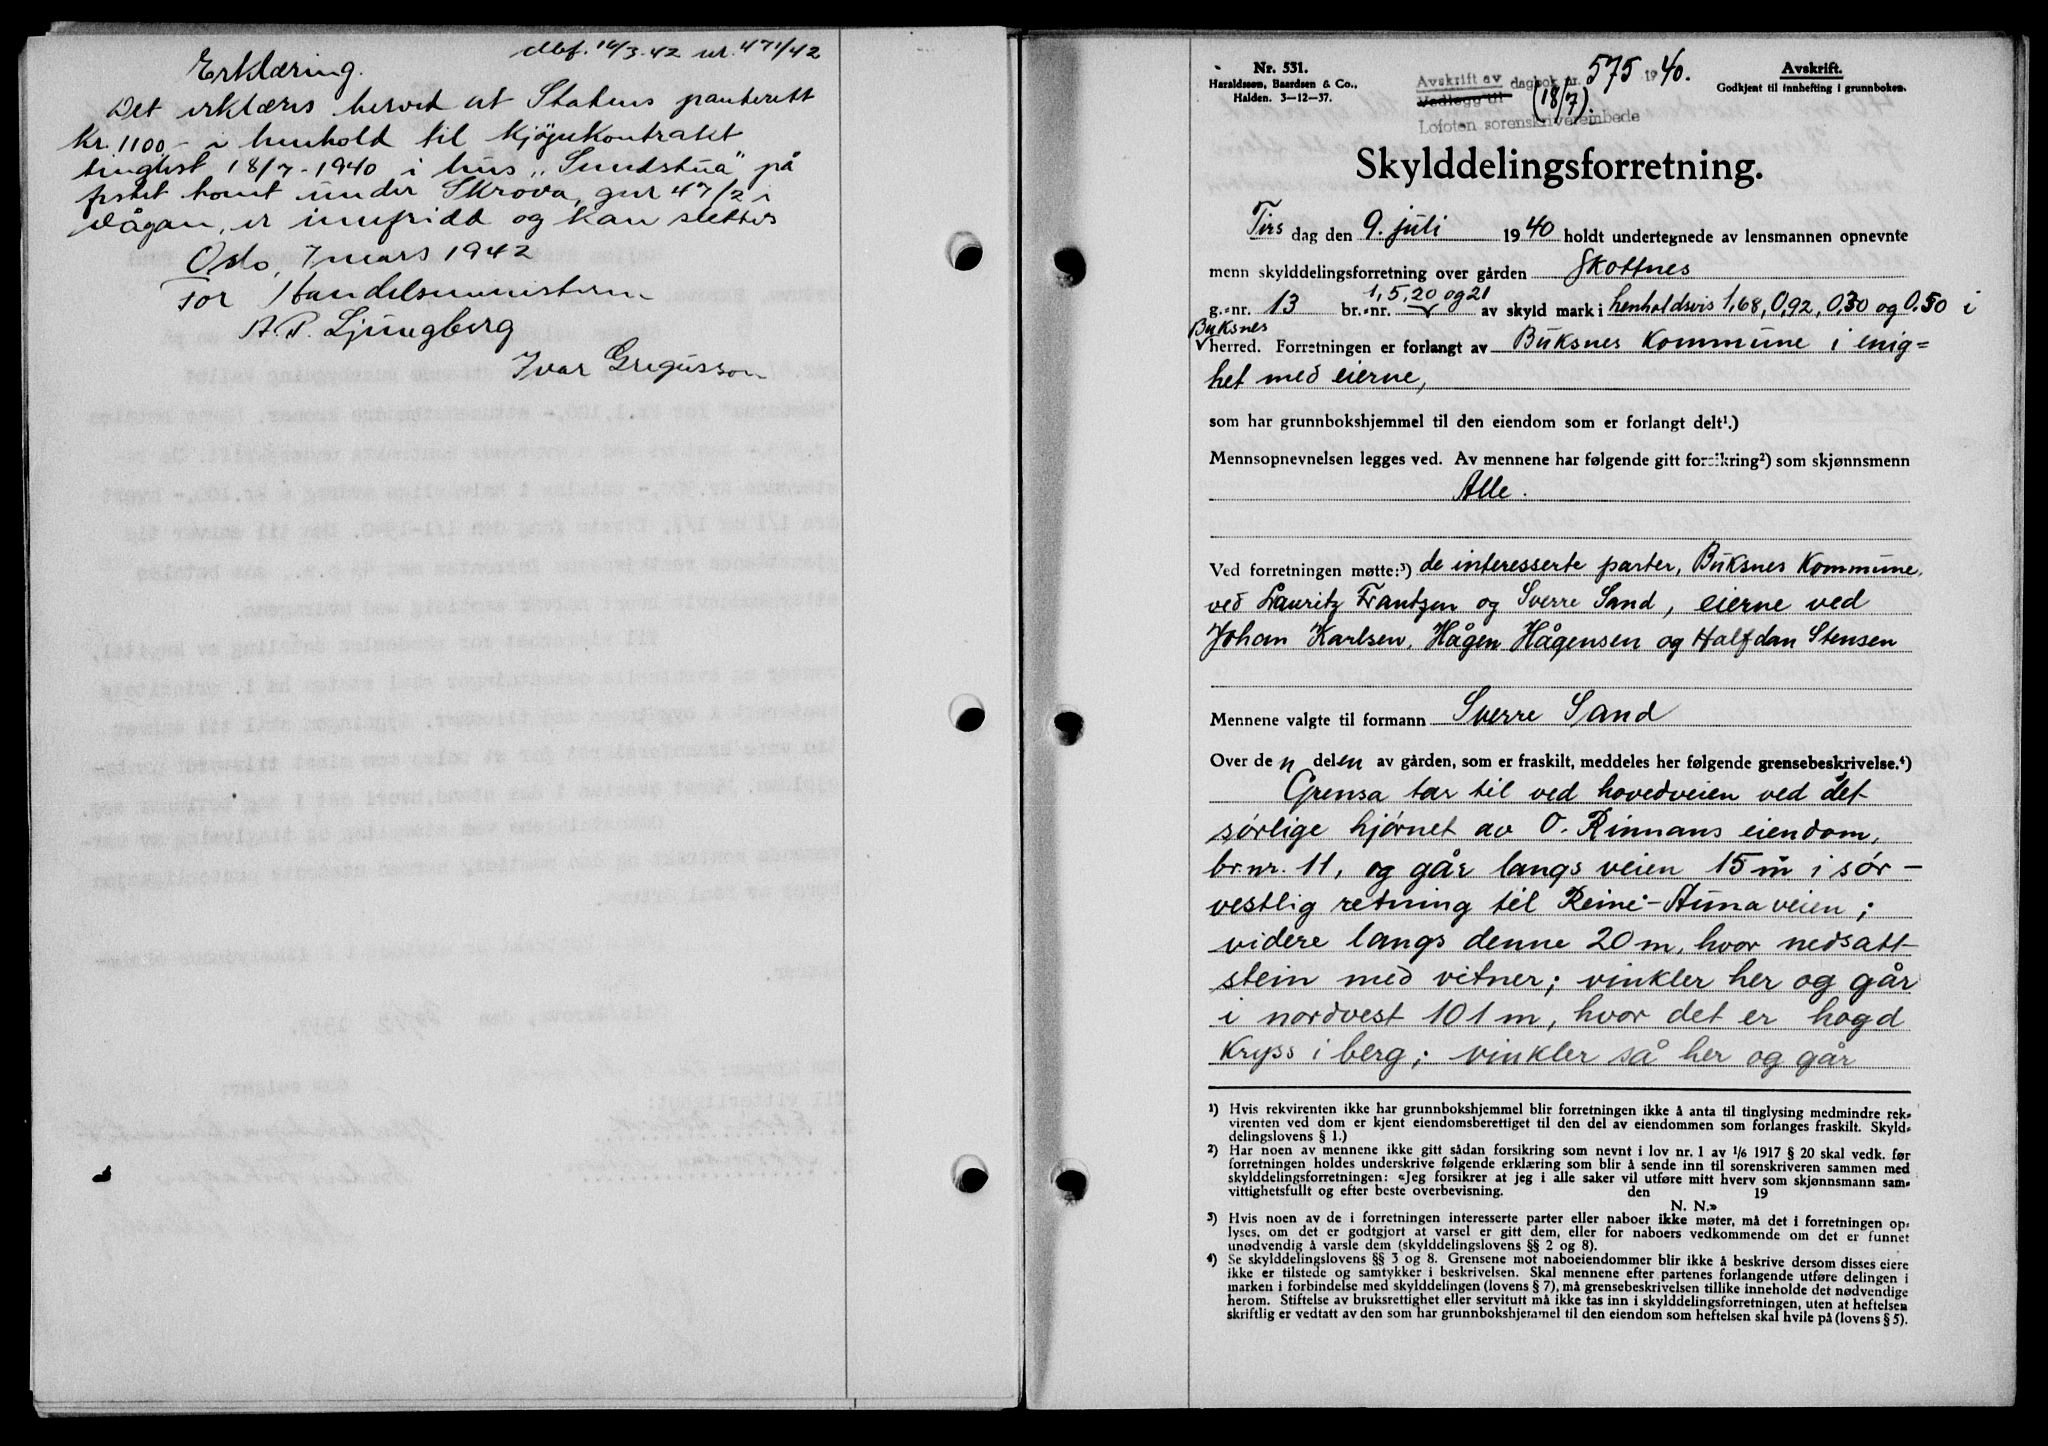 dbf. 14/3.42 nr. 471/42
Erklæring.
Det erklæres herved at Statens panterett
kr. 1100,- i henhold til kjøpekontrakt
tinglyst 18/7-1940 i hus „Sundstua" på
festet tomt under Skrova, gnr 47/2 i
Vågan, er innfridd og kan slettes
Oslo, 7 mars 1942
For Handelsministeren
A. P. Ljungberg
Ivar Gregusson
Nr. 531.
Haraldssen, Baardsen & Co.,
Halden. 3-12-37.
Avskrift av dagbok nr. 575 1940.
Vedlegg til (18/7).
Lofoten sorenskriverembede
Avskrift.
Godkjent til innhefting i grunnboken.
Skylddelingsforretning.
Tirs dag den 9. juli 1940 holdt undertegnede av lensmannen opnevnte
menn skylddelingsforretning over gården Skottnes
g.-nr. 13 br.-nr. 1, 5, 20 og 21 av skyld mark i henholdsvis 1,68, 0,92, 0,30 og 0.50 i
Buksnes
herred. Forretningen er forlangt av Buksnes Kommune i enig=
het med eierne,
som har grunnbokshjemmel til den eiendom som er forlangt delt¹.)
Mennsopnevnelsen legges ved. Av mennene har følgende gitt forsikring²) som skjønnsmenn
Alle.
Ved forretningen møtte:³) de interesserte parter, Buksnes Kommune,
ved Lauritz Frantzen og Sverre Sand, eierne ved
Johan Karlsen, Hågen Hågensen og Halfdan Stensen
Mennene valgte til formann Sverre Sand
Over den delen av gården, som er fraskilt, meddeles her følgende grensebeskrivelse.⁴)
Grensa tar til ved hovedveien ved det
sørlige hjørnet av O. Rinnans eiendom,
br.nr. 11, og går langs veien 15 m i sør-
vestlig retning til Reine-Auna veien;
videre langs denne 20 m, hvor nedsatt
stein med vitner; vinkler her og går
i nordvest 101 m, hvor det er hogd
kryss i berg; vinkler så her og går
¹) Hvis rekvirenten ikke har grunnbokshjemmel blir forretningen ikke å anta til tinglysing medmindre rek-
virenten ved dom er kjent eiendomsberettiget til den del av eiendommen som forlanges fraskilt. Skyld-
delingslovens § 1.)
²) Har noen av mennene ikke gitt sådan forsikring som nevnt i lov nr. 1 av 1/6 1917 § 20 skal vedk. før
forretningen holdes underskrive følgende erklæring som blir å sende inn til sorenskriveren sammen med
skylddelingsforretningen: «Jeg forsikrer at jeg i alle saker vil utføre mitt hverv som skjønnsmann sam-
vittighetsfullt og efter beste overbevisning. den 19
N. N.»
³) Hvis noen av de i forretningen interesserte parter eller naboer ikke møter, må det i forretningen op-
lyses, om det er godtgjort at varsel er gitt dem, eller for naboers vedkommende om det er funnet
unødvendig å varsle dem (skylddelingslovens §§ 2 og 8).
⁴) Se skylddelingslovens §§ 3 og 8. Grensene mot naboeiendommer blir ikke å beskrive dersom disses eiere
ikke er tilstede og samtykker i beskrivelsen. Skal mennene efter partenes forlangende utføre delingen i
marken i forbindelse med skylddelingen (lovens § 7), må grensebeskrivelsen tillike inneholde det nødvendige
herom. Stiftelse av bruksrettighet eller servitutt må ikke tas inn i skylddelingsforretningen, uten at heftelsen
skriftlig er vedtatt av den som har grunnbokshjemmel til den eiendom som heftelsen skal hvile på (lovens § 5).